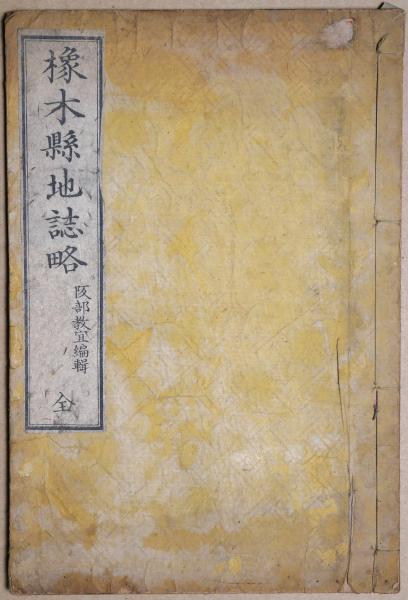 橡木縣地誌略
阪部教宜編輯
全